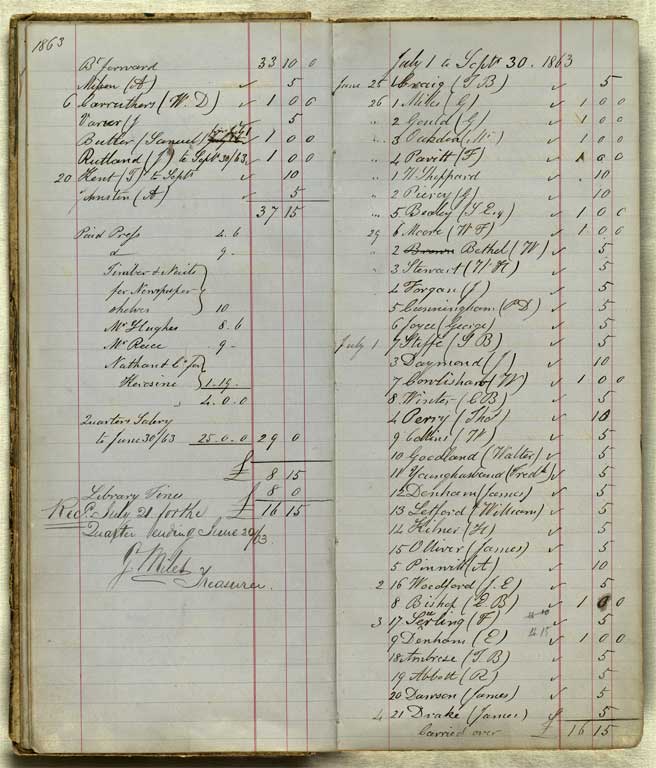 1863
Bt forward 33 10 0
Mison (A) ✓ 5
6 Carruthers (W. D) ✓ 1 0 0
J 5
Butler (Samuel) ✓ 1 0 0
Rutland (J) to Septr 30/63 ✓ 1 0 0
20 Kent (T) to Septr 10
(A) ✓ 5
37 15
Paid Press 4. 6
9
Timber & Nails
for Newspaper
shelves 10
Mr Hughes 8. 6
Mr Reece 9
Nathan & Co for
Kerosine 1. 19
4. 0. 0
Quarters Salary
to June 30/63 25. 0. 0 29 0
£ 8 15
Library Fines 8 0
Recd. July 21 for the £ 16 15
Quarter ending June 30/63.
G Miles
Treasurer.
July 1 to Septr 30. 1863
June 25 (T B) ✓ 5
26 1 Miles (G) 1 0 0
" 2 Gould (G) 1 0 0
" 3 Oakden (Mr) ✓ 1 0 0
" 4 Pavitt (F) 1 0 0
" 1 W Sheppard 10
" 2 Piercy (G) 10
" 5 Bealey (J. Esq ✓ 1 0 0
29 6 Moore (W F) ✓ 1 0 0
" 2 Brown Bethel (W) ✓ 5
" 3 Stewart (W H) ✓ 5
4 Forgan (J) ✓ 5
5 Cunningham (P D) ✓ 5
6 Joyce (George) ✓ 5
July 1 7 Stiffe (G B) ✓ 5
3 Daymond (J) ✓ 10
7 Cowlishaw (W) ✓ 1 0 0
8 Winter (C B) ✓ 5
4 Perry (Thos) ✓ 10
9 Collins (W) ✓ 5
10 Goodland (Walter) ✓ 5
11 Younghusband (Fredk) ✓ 5
12 Denham (James) ✓ 5
13 Letford (William) ✓ 5
14 Kilner (H) ✓ 5
15 Olliver (James) ✓ 5
5 Pinwill (A) ✓ 10
2 16 Woodford (J. E) ✓ 5
8 Bishop (E. B) ✓ 1 0 0
3 17 (F) ✓ 5
9 Denham (E) ✓ 1 0 0
18 Ambrose (T. B) ✓ 5
19 Abbott (R) ✓ 5
20 Dawson (James) ✓ 5
4 21 Drake (James) 5
Carried over £ 16 15